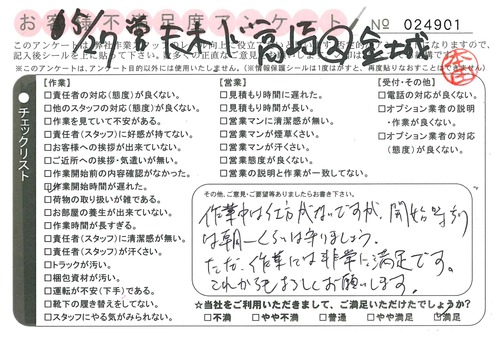 お客様不満足度アンケート
№ 024901
このアンケートは
記入後シールを上に貼って下さい。
※このアンケートは、アンケート目的以外には使用いたしません。(※情報保護シールは1度はがすと、再度貼りなおすことはできません)
チェックリスト
【作業】
□責任者の対応(態度)が良くない。
□他のスタッフの対応(態度)が良くない。
□作業を見ていて不安がある。
□責任者(スタッフ)に好感が持てない。
□お客様への挨拶が出来ていない。
□ご近所への挨拶・気遣いが無い。
□作業開始前の内容確認がなかった。
□作業開始時間が遅れた。
□荷物の取り扱いが雑である。
□お部屋の養生が出来ていない。
□作業時間が長すぎる。
□責任者(スタッフ)に清潔感が無い。
□責任者(スタッフ)が汗くさい。
□トラックが汚い。
□梱包資材が汚い。
□運転が不安(下手)である。
□靴下の履き替えをしてない。
□スタッフにやる気がみられない。
【営業】
□見積もり時間に遅れた。
□見積もり時間が長い。
□営業マンに清潔感が無い。
□営業マンが煙草くさい。
□営業マンが汗くさい。
□営業態度が良くない。
□営業の説明と作業が一致してない。
【受付・その他】
□電話の対応が良くない。
□オプション業者の説明
・作業が良くない。
□オプション業者の対応
(態度)が良くない。
その他、ご意見・ご要望等ありましたらお書き下さい。
作業中は仕方がないですが、開始時刻
は朝一くらいは守りましょう。
ただ、作業には非常に満足です。
これからもよろしくお願いします。
★当社をご利用いただきまして、ご満足いただけたでしょうか?
□不満 □やや不満 □普通 □やや満足 □満足